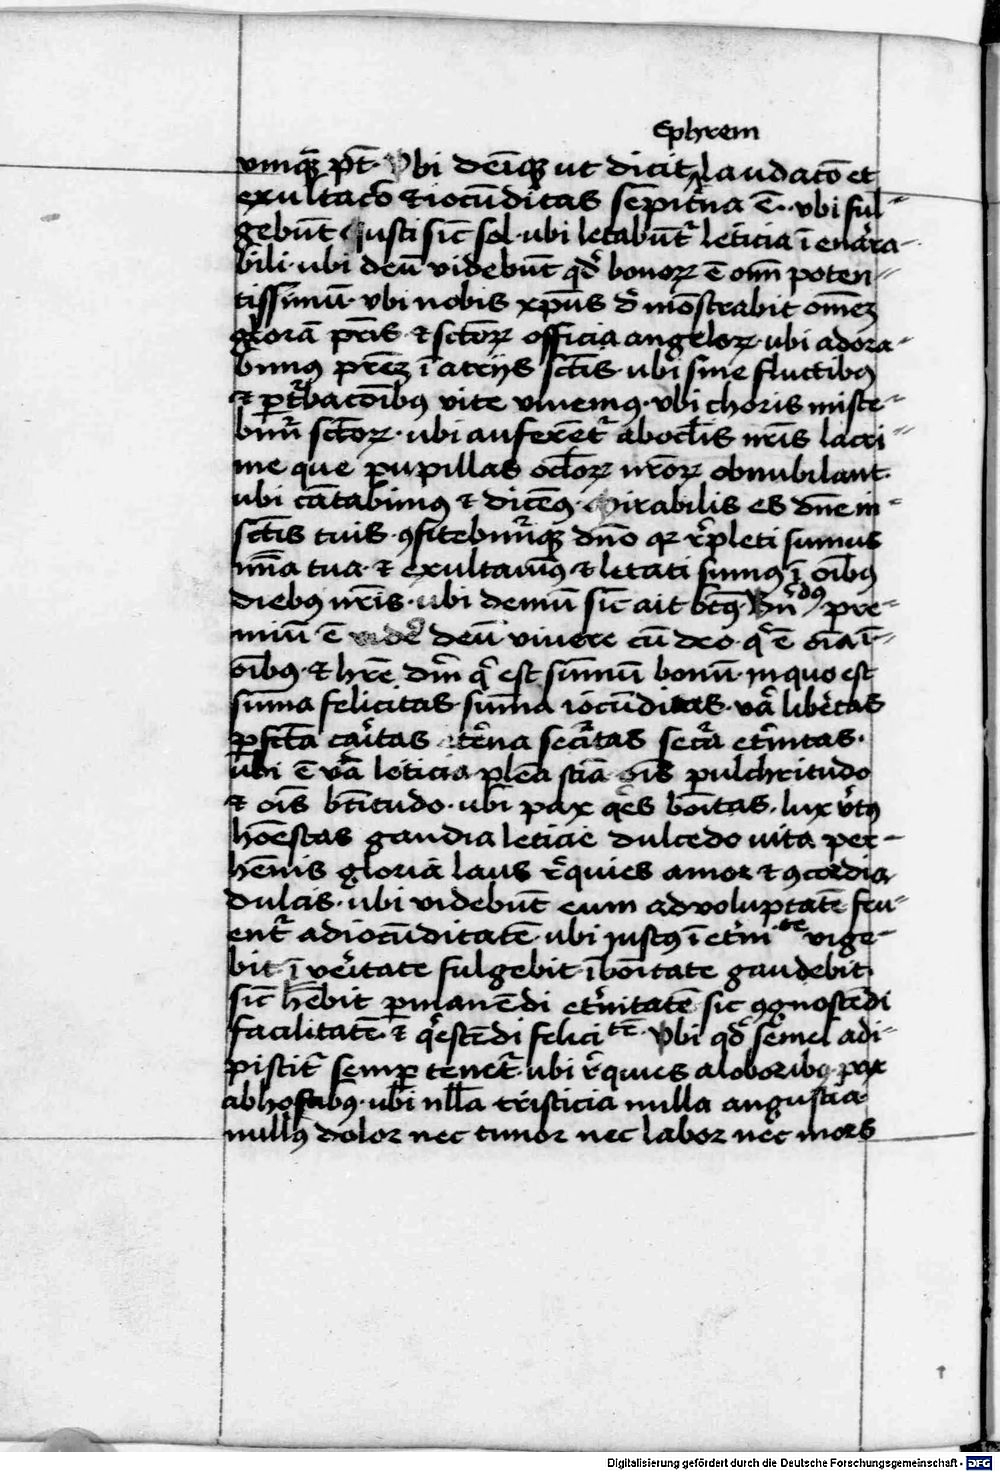 Ephrem
vmqꝫ pt̄. Vbi deīqꝫ ut dicit laudacō et
exultacō ⁊ iocūditas sēpit̾na ē. vbi ful⸗
gebūt iusti sic̄ sol. ubi letabūt᷑ leticia ī enar̾ra⸗
bili. ubi deū videbūt qd̾ bonoꝝ ē om̄ poten⸗
tissimū. vbi nobis xp̄us d̾mōstrabit om̄eꝫ
glorā pr̄is. ⁊ sc̄toꝝ officia angeloꝝ. ubi adora⸗
bimꝰ pr̄eꝫ ī atrijs sc̄tis. ubi sine fluctibꝰ
⁊ ꝑt̾bacōibꝰ vite viuemꝰ. vbi choris misce⸗
bim̄ sc̄toꝝ. ubi auferēt᷑ ab ocl̄is nr̄is lacri⸗
me que pupillas ocl̄oꝝ nr̄oꝝ obnubilant.
ubi cātabimꝰ ⁊ dicēꝰ. Mirabilis es dn̄e in⸗
sc̄tis tuis. ꝯfitebim̄qꝫ dn̄o qꝛ r̾pleti sumus
mīa tua. ⁊ exultauimꝰ ⁊ letati sumꝰ ī oībꝰ
diebꝰ nr̄is. ubi demū sic̄ ait bt̄ꝰ Bn̄dꝰ pre⸗
miū ē videre deū viuere cū deo. q̾ ē oīa ī⸗
oībꝰ. ⁊ hr̄e dm̄ q̾ est sūmū bonū. in quo est
sūma felicitas. sūma iocūditas. va̾ lib̾tas
ꝑfc̄ta car̾itas et̾na sec̾itas sec̾a et̾nitas.
ubi ē va̾ leticia. plēa sc̄ia. oīs pulchritudo
⁊ oīs bt̄itudo. ubi pax q̾es boītas. lux v̾tꝰ
hōestas gaudia leticie dulcedo uita per⸗
hēnis gloria laus r̾quies amor ⁊ ꝯcordia
dulcis. ubi videbūt eum ad voluptatē fru⸗
ent᷑ ad iocūditatē. ubi iustꝰ ī et̾niᵗᵉ vige⸗
bit ī v̾itate fulgebit ī boītate gaudebit.
sic̄ hēbit ꝑmanēdi et̾nitatē sic ꝯgnoscēdi
facilitatē. ⁊ q̾escēdi feliciᵗᵉ̄. Vbi qd̾ semel adi⸗
piscit᷑ semꝑ tenet᷑. ubi r̾quies a laboribꝰ. pax
ab hostibꝰ. ubi nl̄la tristicia nulla angustia
nullꝰ dolor nec timor nec labor nec mors
Digitalisierung gefördert durch die Deutsche Forschungsgemeinschaft - DFG